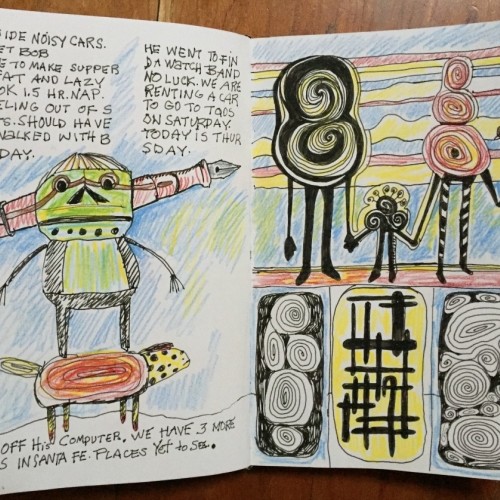 SIDE NOISY CARS.
ET BOB
E TO MAKE SUPPER
FAT AND LAZY
OK 1.5 HR. NAP.
ELING OUT OF S
S. SHOULD HAVE
WALKED WITH B
DAY.
HE WENT TO FIN
D A WATCH BAND
NO LUCK. WE ARE
RENTING A CAR
TO GO TO TAOS
ON SATURDAY.
TODAY IS THUR
SDAY.
OFF HIS COMPUTER. WE HAVE 3 MORE
S IN SANTA FE. PLACES YET TO SEE.